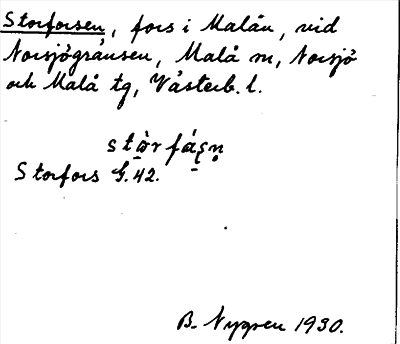 Storforsen, fors i Malån, vid
Norsjögränsen, Malå sn, Norsjö
och Malå tg, Västerb. l.
Storfors G. 42.
B. Nygren 1930.